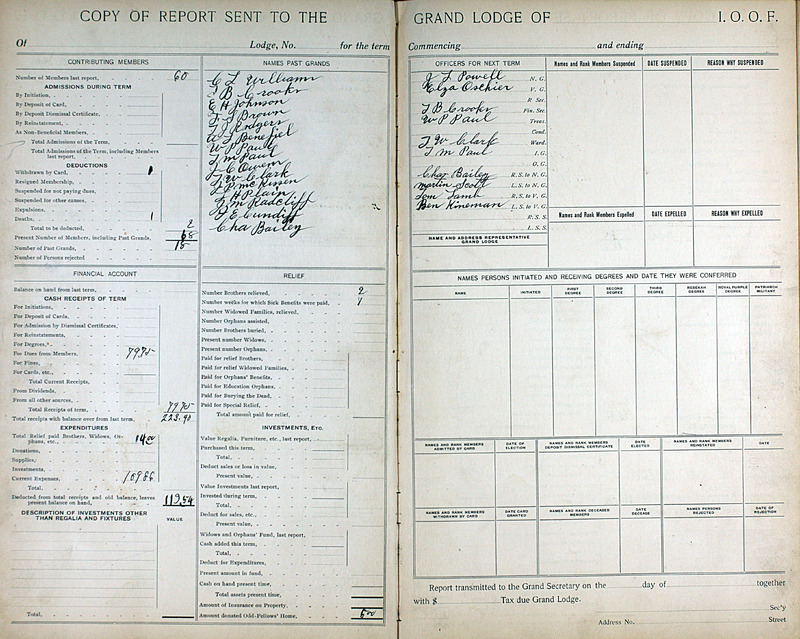 COPY OF REPORT SENT TO THE
Of Lodge, No. for the term
CONTRIBUTING MEMBERS
Number of Members last report, 60
ADMISSIONS DURING TERM
By Initiation,
By Deposit of Card,
By Deposit Dismissal Certificates,
By Reinstatement,
As Non-Beneficial Members,
Total Admissions of the Term,
Total Admissions of the Term, including Members last report,
DEDUCTIONS
Withdrawn by Card, 1
Resigned Membership,
Suspended for not paying dues,
Suspended for other causes,
Expulsions,
Deaths, 1
Total to be deducted, 2
Present Number of Members, including Past Grands,
Number of Past Grands, 15
Number of Persons rejected
NAMES PAST GRANDS
C L Williams
J B Crooks
E H Johnson
F L Brown
W L Benefiel
W P Paul
T M Paul
L C Owens
T W Clark
J P McKinsen
J H Plain
J M Radcliff
J E Cundiff
Cha Bailey
FINANCIAL ACCOUNT
Balance on hand from last term,
CASH RECEIPTS OF TERM
For Initiations,
For Deposit of Cards,
For Admission by Dismissal Certificates,
For Reinstatements,
For Degrees,
For Dues from Members, 79.75
For Fines,
For Cards, etc.,
Total Current Receipts,
From Dividends,
From all other sources,
Total Receipts of term, 79.75
Total receipts with balance over from last term, 223.40
EXPENDITURES
Total Relief paid Brothers, Widows, Orphans, etc., 14.00
Donations,
Supplies,
Investments,
Current Expenses, 109.86
Total,
Deducted from total receipts and old balance, leaves present balance on hand, 119.54
DESCRIPTION OF INVESTMENTS OTHER THAN REGALIA AND FIXTURES VALUE
Total,
RELIEF
Number Brothers relieved, 2
Number weeks for which Sick Benefits were paid,
Number Widowed Families, relieved,
Number Orphans assisted,
Number Brothers buried,
Present number Widows,
Present number Orphans,
Paid for relief Brothers,
Paid for relief Widowed Families,
Paid for Orphans' Benefits,
Paid for Education Orphans,
Paid for Burying the Dead,
Paid for Special Relief,
Total amount paid for relief,
INVESTMENTS, Etc.
Value Regalia, Furniture, etc., last report,
Purchased this term,
Total,
Deduct sales or loss in value,
Present value,
Value Investments last report,
Invested during term,
Total,
Deduct for sales, etc.,
Present value,
Widows and Orphans' Fund, last report,
Cash added this term,
Total,
Deduct for Expenditures,
Present amount in fund,
Cash on hand present time,
Total assets present time,
Amount of Insurance on Property,
Amount donated Odd-Fellows' Home, 6.00
GRAND LODGE OF I. O. O. F.
Commencing and ending
OFFICERS FOR NEXT TERM
J L Powell N. G.
Elza Oschier V. G.
R Sec.
J B Crooks Fin. Sec.
W P Paul Treas.
Cond.
T W Clark Ward.
T M Paul I. G.
O. G.
Chas Bailey R. S. to N. G.
Martin Scott L. S. to N. G.
Tom Lamb R. S. to V. G.
Ben Kineman L. S. to V. G.
R. S. S.
L. S. S.
NAME AND ADDRESS REPRESENTATIVE GRAND LODGE
Names and Rank Members Suspended DATE SUSPENDED REASON WHY SUSPENDED
Names and Rank Members Expelled DATE EXPELLED REASON WHY EXPELLED
NAMES PERSONS INITIATED AND RECEIVING DEGREES AND DATE THEY WERE CONFERRED
NAME INITIATED FIRST DEGREE SECOND DEGREE THIRD DEGREE REBEKAH DEGREE ROYAL PURPLE DEGREE PATRIARCH MILITANT
NAMES AND RANK MEMBERS ADMITTED BY CARD DATE OF ELECTION NAMES AND RANK MEMBERS DEPOSIT DISMISSAL CERTIFICATE DATE ELECTED NAMES AND RANK MEMBERS REINSTATED DATE
NAMES AND RANK MEMBERS WITHDRAWN BY CARD DATE CARD GRANTED NAMES AND RANK DECEASED MEMBERS DATE DECEASE NAMES PERSONS REJECTED DATE OF REJECTION
Report transmitted to the Grand Secretary on the day of together
with $ Tax due Grand Lodge.
Sec'y
Address No. Street